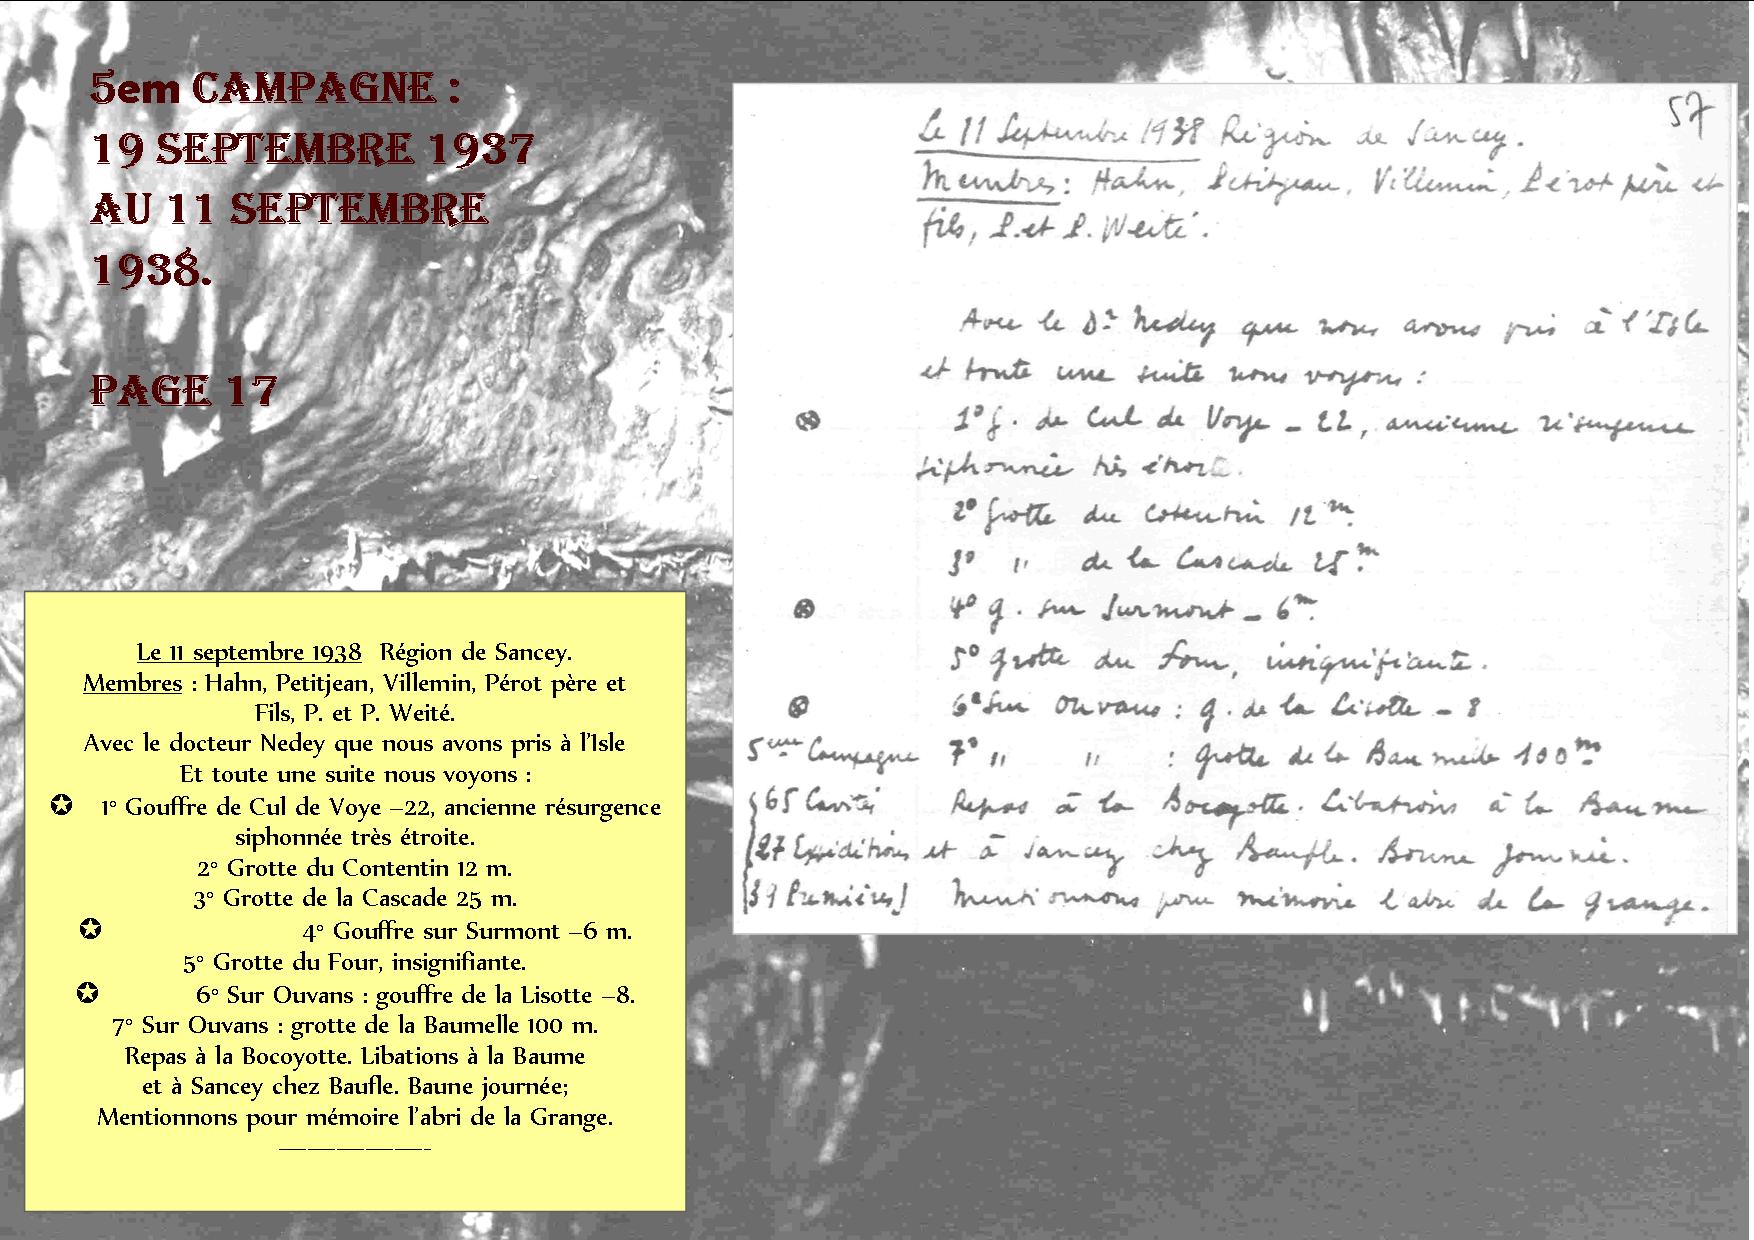 5em CAMPAGNE :
19 SEPTEMBRE 1937
AU 11 SEPTEMBRE
1938.
PAGE 17
Le 11 septembre 1938 Région de Sancey.
Membres : Hahn, Petitjean, Villemin, Pérot père et
Fils, P. et P. Weité.
Avec le docteur Nedey que nous avons pris à l'Isle
Et toute une suite nous voyons :
✪ 1° Gouffre de Cul de Voye –22, ancienne résurgence
siphonnée très étroite.
2° Grotte du Contentin 12 m.
3° Grotte de la Cascade 25 m.
✪ 4° Gouffre sur Surmont –6 m.
5° Grotte du Four, insignifiante.
✪ 6° Sur Ouvans : gouffre de la Lisotte –8.
7° Sur Ouvans : grotte de la Baumelle 100 m.
Repas à la Bocoyotte. Libations à la Baume
et à Sancey chez Baufle. Baune journée;
Mentionnons pour mémoire l'abri de la Grange.
57
Le 11 Septembre 1938 Région de Sancey.
Membres : Hahn, Petitjean, Villemin, Pérot père et
fils, P. et P. Weité.
Avec le Dr Nedey que nous avons pris à l'Isle
et toute une suite nous voyons :
1° g. de Cul de Voye – 22, ancienne résurgence
siphonnée très étroite.
2° Grotte du Cotentin 12 m.
3° " de la Cascade 25 m.
4° g. sur Surmont – 6 m.
5° grotte du Four, insignifiante.
6° Sur Ouvans : g. de la Lisotte – 8
5ème Campagne 7° " " : grotte de la Baumelle 100 m.
65 Cavités Repas à la Bocoyotte. Libations à la Baume
27 Expéditions et à Sancey chez Baufle. Bonne journée.
[39 Premières] Mentionnons pour mémoire l'abri de la grange.